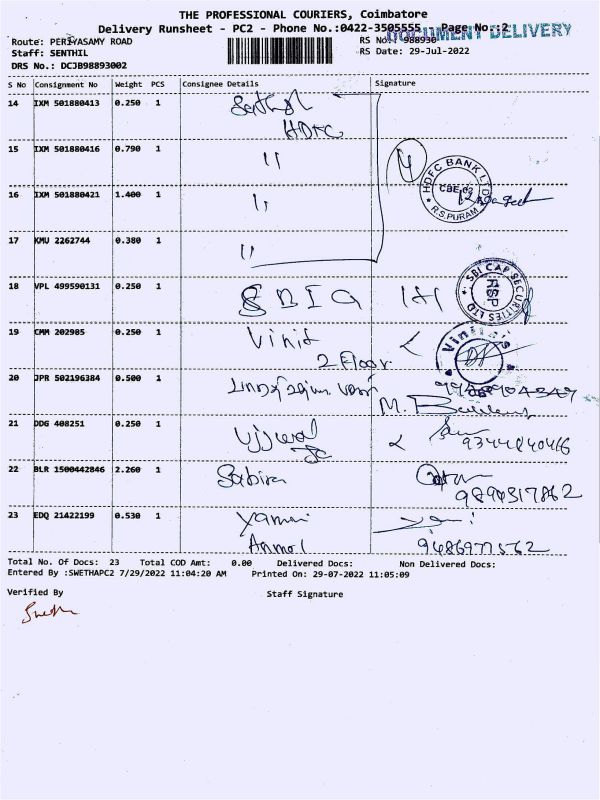 THE PROFESSIONAL COURIERS, Coimbatore
Delivery Runsheet - PC2 - Phone No.:0422-3505555 Page No.:2
DOCUMENT DELIVERY
Route: PERIYASAMY ROAD RS No.: 988930
Staff: SENTHIL RS Date: 29-Jul-2022
DRS No.: DCJB98893002
S No Consignment No Weight PCS Consignee Details Signature
14 IXM 501880413 0.250 1 Senthil
HDFC
15 IXM 501880416 0.790 1 "
4
HDFC BANK LTD
CBE-03
R.S.PURAM
16 IXM 501880421 1.400 1 "
17 KMU 2262744 0.380 1 "
18 VPL 499590131 0.250 1 SBIG
SBI CAP SECURITIES LTD
RSP
19 CMM 202985 0.250 1 Vinit
2 Floor
20 JPR 502196384 0.500 1
M.
21 DDG 408251 0.250 1 Ujjwal
9344840466
22 BLR 1500442846 2.260 1 Sabira
9894317862
23 EDQ 21422199 0.530 1 Yamini
Anmol 9486977562
Total No. Of Docs: 23 Total COD Amt: 0.00 Delivered Docs: Non Delivered Docs:
Entered By :SWETHAPC2 7/29/2022 11:04:20 AM Printed On: 29-07-2022 11:05:09
Verified By Staff Signature
Swetha